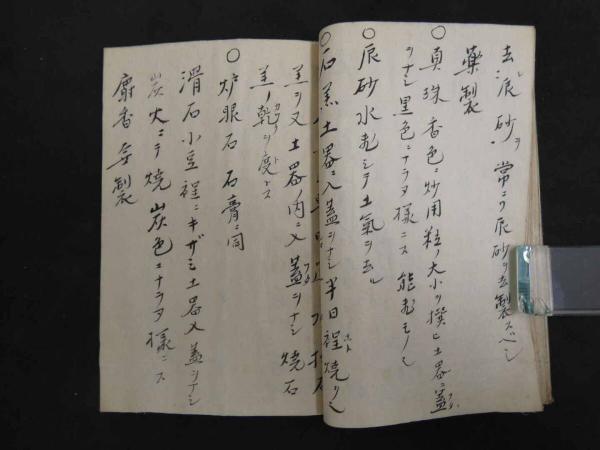 去泥砂ヲ常ニヨリ辰砂ヲ去製スベシ
薬製
○真珠香色ニ炒用粒ノ大小ヲ撰ヒ土器ニ蓋
ヲナシ黒色ニナラヌ様ニス能飛モノ也
○辰砂水飛シテ土氣ヲ去ル
○石羔土器ニ入蓋ヲナシ半日程焼クヘ
羔ヲ又土器ノ内ニ入蓋ヲナシ焼石
羔ノ乾ヲ度トス
○炉眼石 石膏ニ同
滑石小豆程ニキザミ土器入蓋ヲナシ
炭火ニテ焼炭色ニナラヌ様ニス
麝香 製